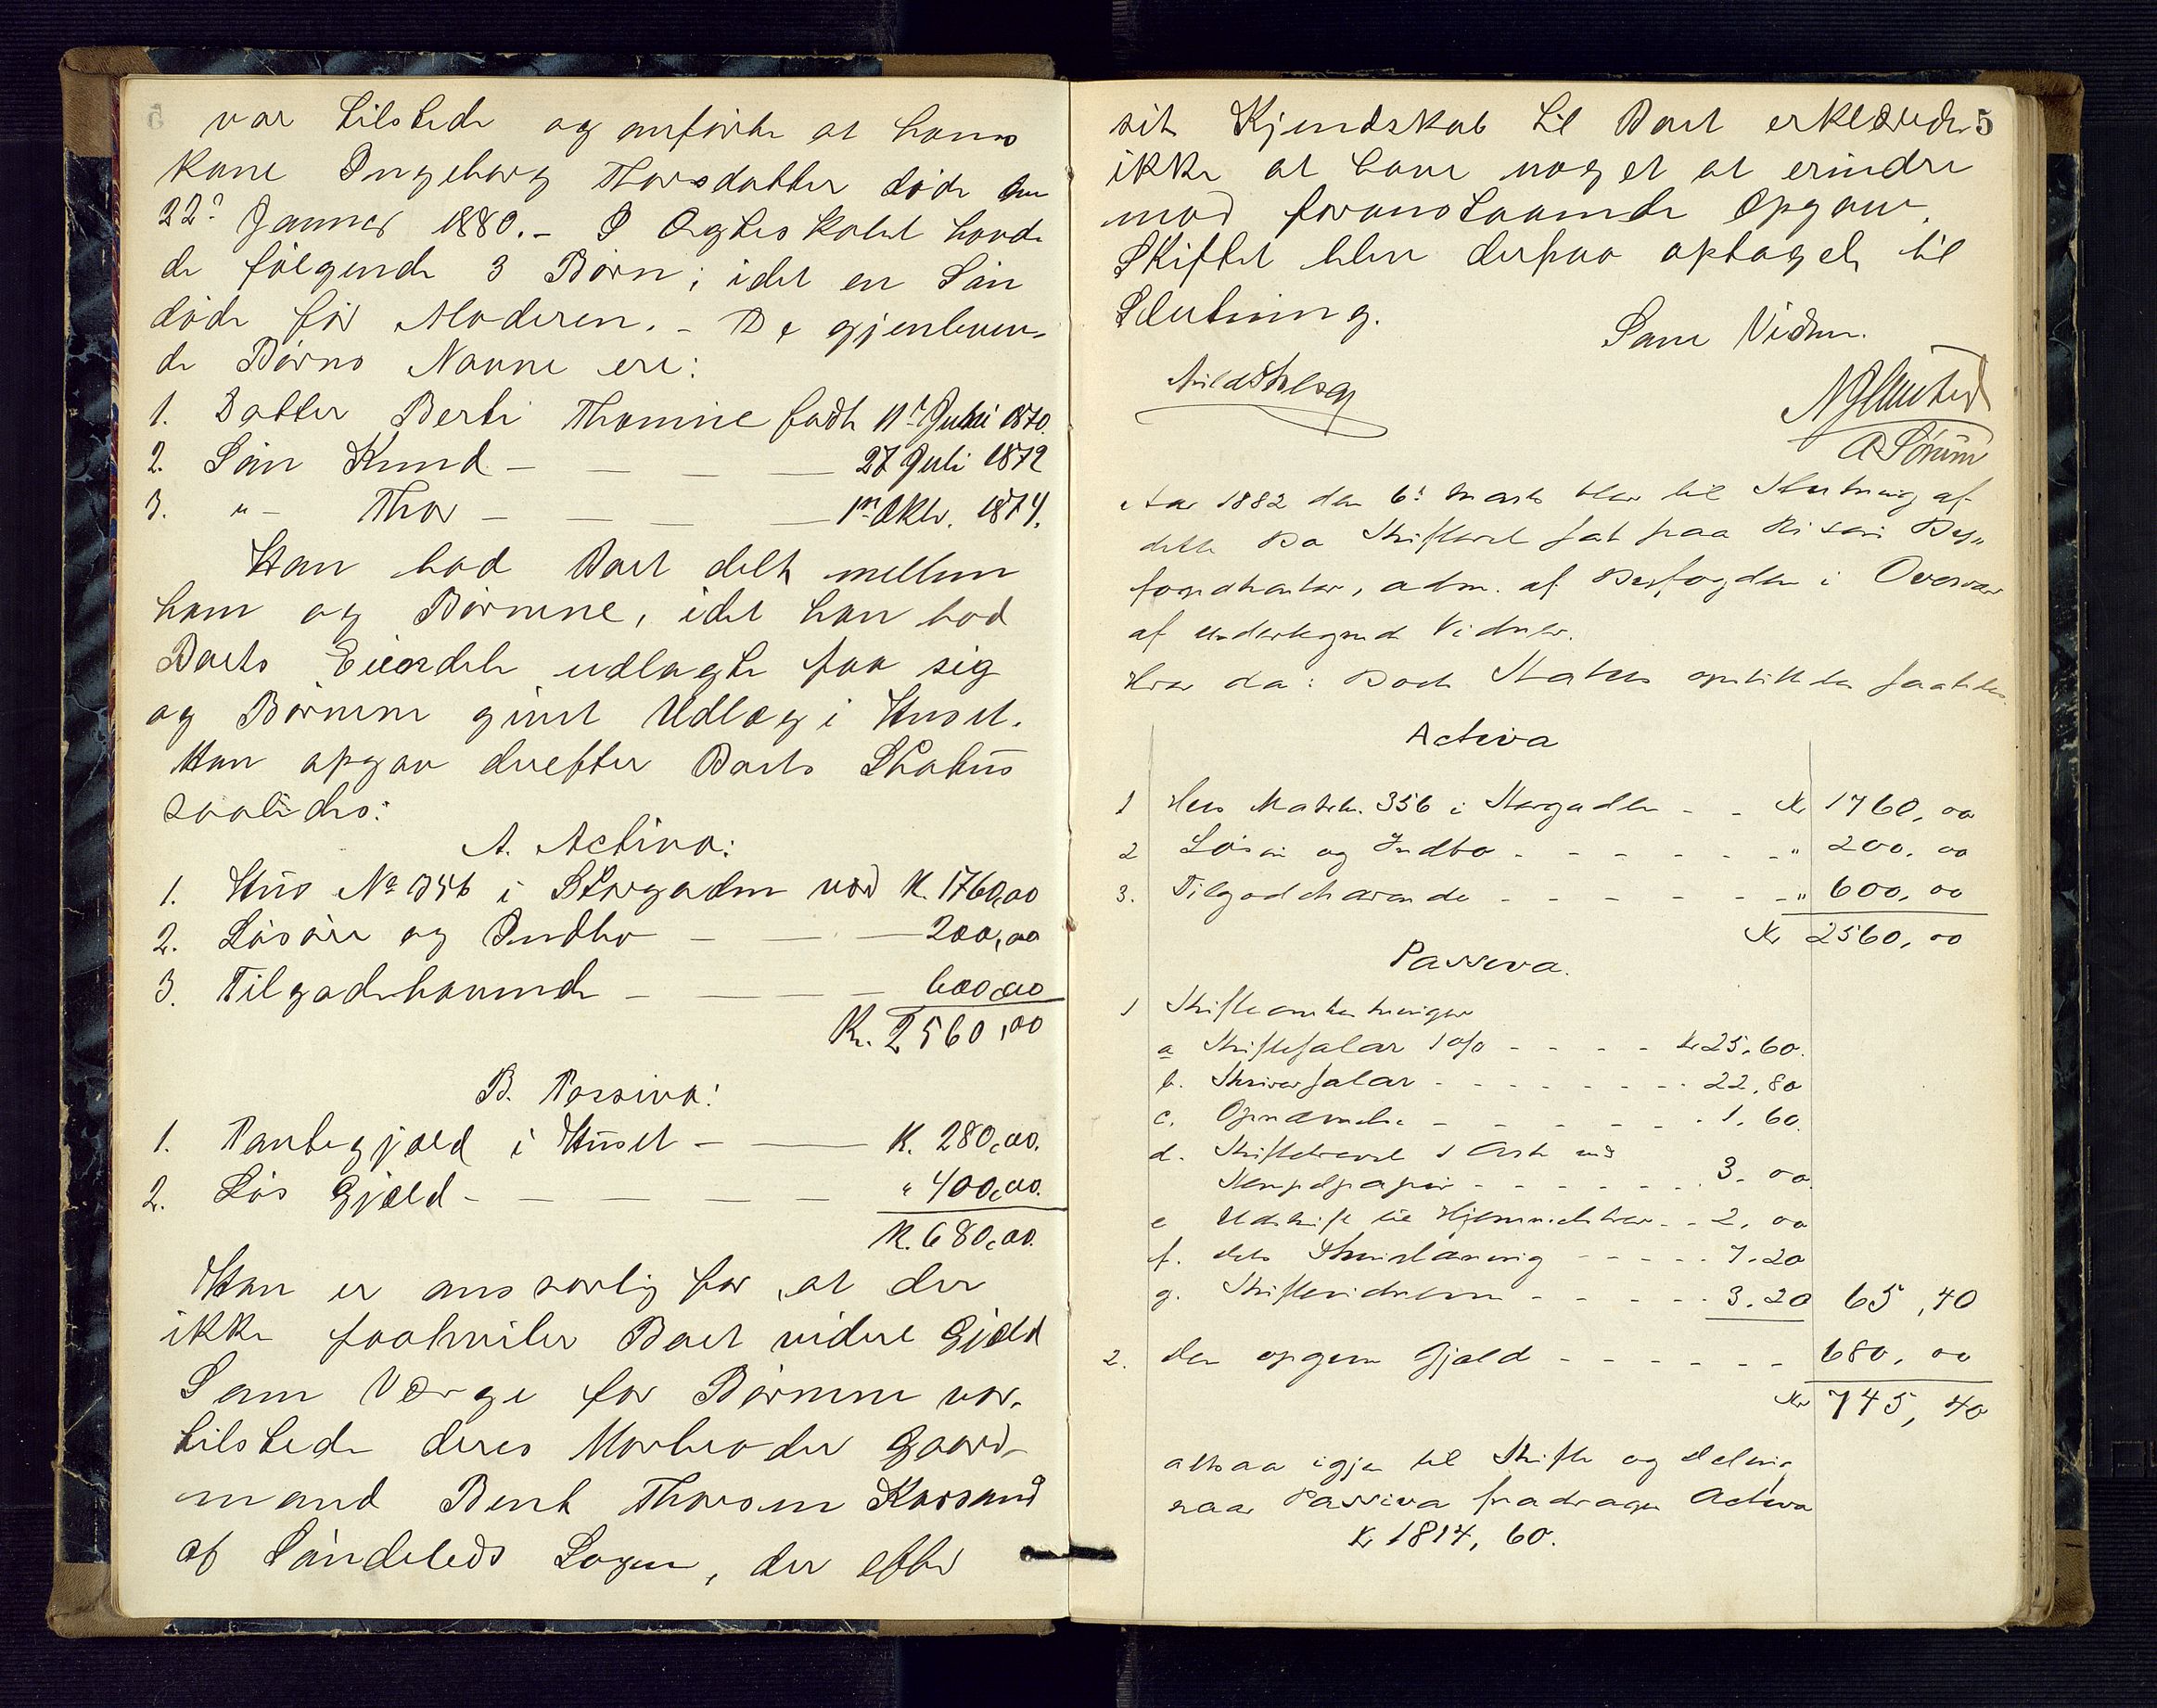 var tilstede og anførte at hans
Kone Ingeborg Thorsdatter døde den
22d Januar 1880. - I Ægteskabet havde
de følgende 3 Børn; idet en Søn
døde før Moderen. - De gjenleven-
de Børns Navne ere:
1. Datter Berte Thomine født 11te Juni 1870.
2. Søn Knud - - - - 27 Juli 1872
3. " - Thor - - - - 1ste Oktr. 1874.
Han bad Boet delt mellem
ham og Børnene, idet han bad
Boets Eiendele udlagte paa sig
og Børnene givet Udlæg i Huset.
Han opgav derefter Boets Status
saaledes:
A. Activa:
1. Hus No 356 i Storgaden værd K. 1760,00
2. Løsøre og Indbo - - - 200,00
3. Tilgodehavende - - - - 600,00
Kr. 2560,00
B. Passiva:
1. Pantegjæld i Huset - - K. 280,00.
2. Løs Gjæld - - - - - " 400,00.
K. 680,00.
Han er ansvarlig for, at der
ikke paahviler Boet videre Gjæld
Som Værge for Børnene var
tilstede deres Morbroder Gaard-
mand Bent Thorsen
af Søndeleds Sogn, der efter
5
sit Kjendskab til Boet erklærede
ikke at have noget at erindre
mod foranstaaende Opgave.
Skiftet blev derpaa optaget til
Slutning.
Som Vidner.
A Sørum
Aar 1882 den 6t Marts blev til Slutning af
dette Bo Skifteret sat paa Risør By-
fogdkontor, adm. af Byfogden i Overvær
af undertegnede Vidner.
Hvor da: Boets Status opstilltes saaledes
Activa
1 Hus Matrk. 356 i Storgaden - - Kr 1760,00
2 Løsøre og Indbo - - - - - - " 200,00
3. Tilgodehavende - - - - - - " 600,00
Kr 2560,00
Passiva.
1 Skifteomkostninger
a Skiftesalær 1 o/o - - - - Kr 25.60.
b. Skriversalær - - - - - - - 22,80
c. Opnævnelse - - - - - - 1,60.
d. Skiftebrevet 1 Ark med
Stempelpapir - - - - - - 3.00.
e Udskrift til - - 2,00
f. dets - - - - - 7.20
g. Skiftevidnerne - - - - - 3.20 65,40
2. den opgivne Gjæld - - - - - - 680,00
Kr 745,40
altsaa igjen til Skifte og Deling
naar Passiva fradrages Activa
Kr 1814,60.